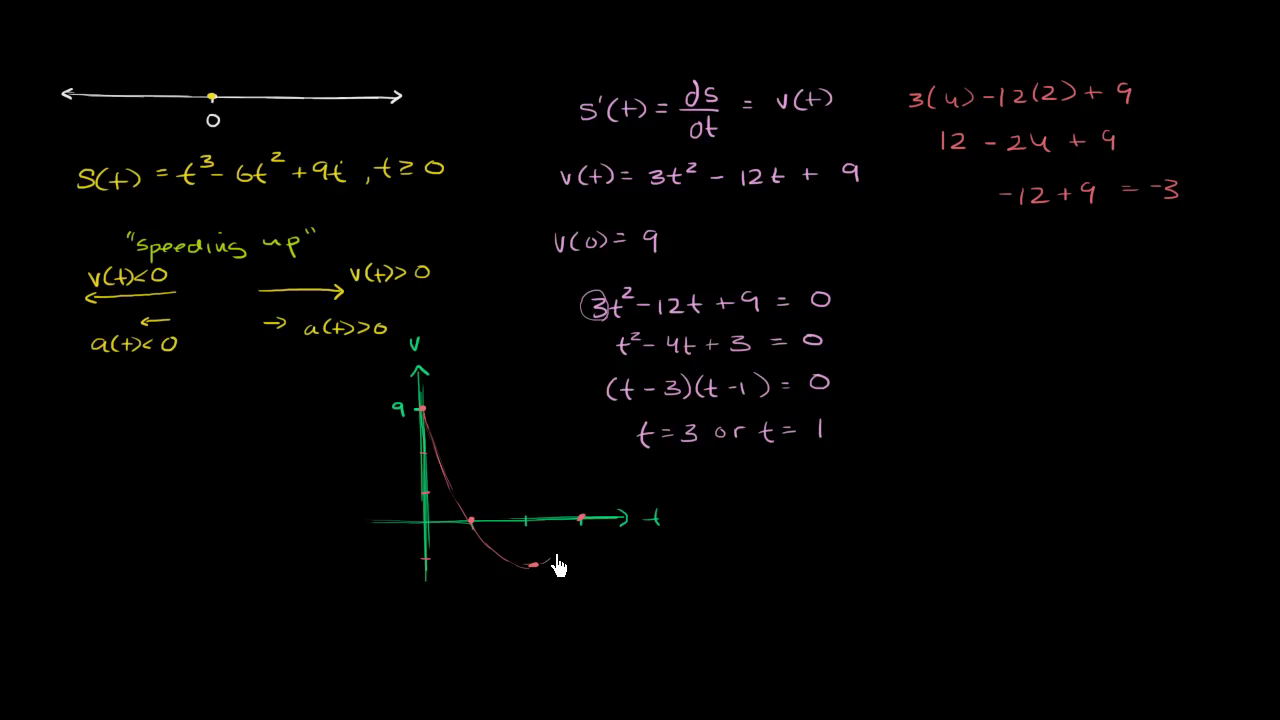 0
S(t) = t³ - 6t² + 9t , t ≥ 0
"speeding up"
v(t)<0
v(t)>0
a(t)<0
a(t)>0
S'(t) = ds/dt = v(t)
v(t) = 3t² - 12t + 9
v(0) = 9
3t² - 12t + 9 = 0
t² - 4t + 3 = 0
(t - 3)(t - 1) = 0
t = 3 or t = 1
3(4) - 12(2) + 9
12 - 24 + 9
-12 + 9 = -3
v
9
t